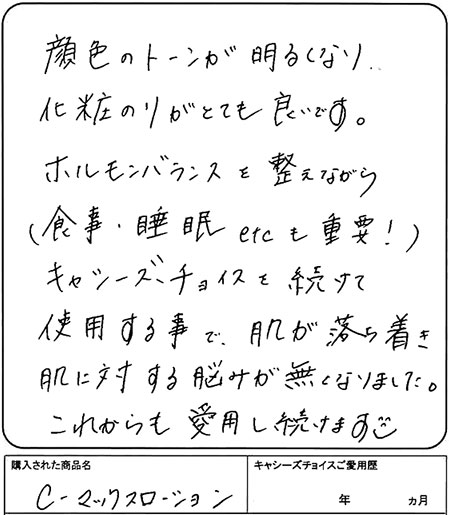 顔色のトーンが明るくなり..
化粧のりがとても良いです。
ホルモンバランスを整えながら
(食事・睡眠etcも重要!)
キャシーズ・チョイスを続けて
使用する事で、肌が落ち着き
肌に対する脳みが無くなりました。
これからも愛用し続けます
購入された商品名
キャシーズチョイスご愛用歴
C-マックスローション
年 ヵ月